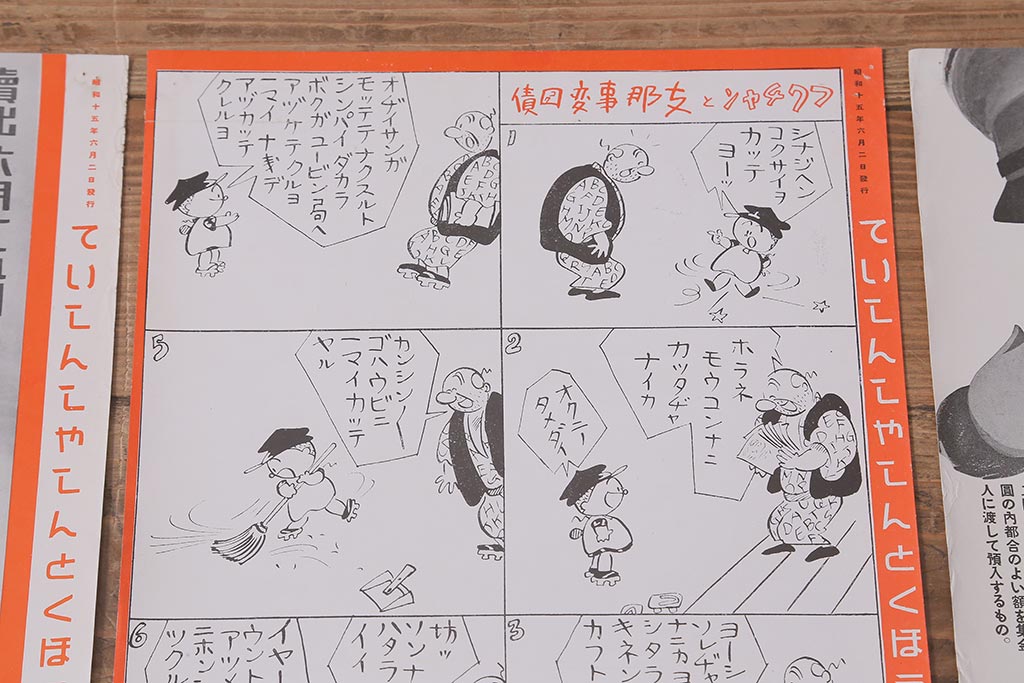 債国変事那支とンャチクフ
昭和十五年六月二日發行
ていこんしゃこんとくほう
1
シナジヘン
コクサイヲ
カッテ
ヨーッ
2
ホラネ
モウコンナニ
カッタヂャ
ナイカ
オクニノ
タメダイ
3
ヨーシ
ソレヂャ
ナニカヨ
シタラ
キネン
カフト
オヂイサンガ
モッテテナクスルト
シンパイダカラ
ボクガユービン局ヘ
アヅケテクルヨ
ニマイナキデ
アヅカッテ
クレルヨ
5
カンシンノー
ゴハウビニ
ニマイカッテ
ヤル
6
坊ッ
ソンナ
ハタラ
イイ
イヤー
ウント
アツメ
ニホン
ツクル
昭和十五年六月二日發行
ていこんしゃこんとくほ
圓の內都合のよい額を集金
人に渡して預入するもの。